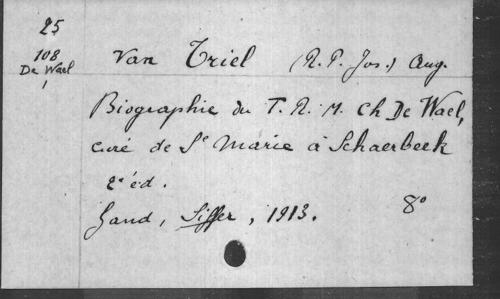 25
108
De Wael
1
Van Triel (R. P. Jos.) Aug.
Biographie du T. R. M. Ch De Wael,
curé de Ste Marie à Schaerbeek
2e éd.
Gand, Siffer, 1913. 8°